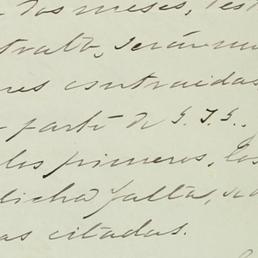 dos meses,
trato, serán
contraidas
parte de S. I. S.,
los primeros, los
dicha falta,
as citadas.